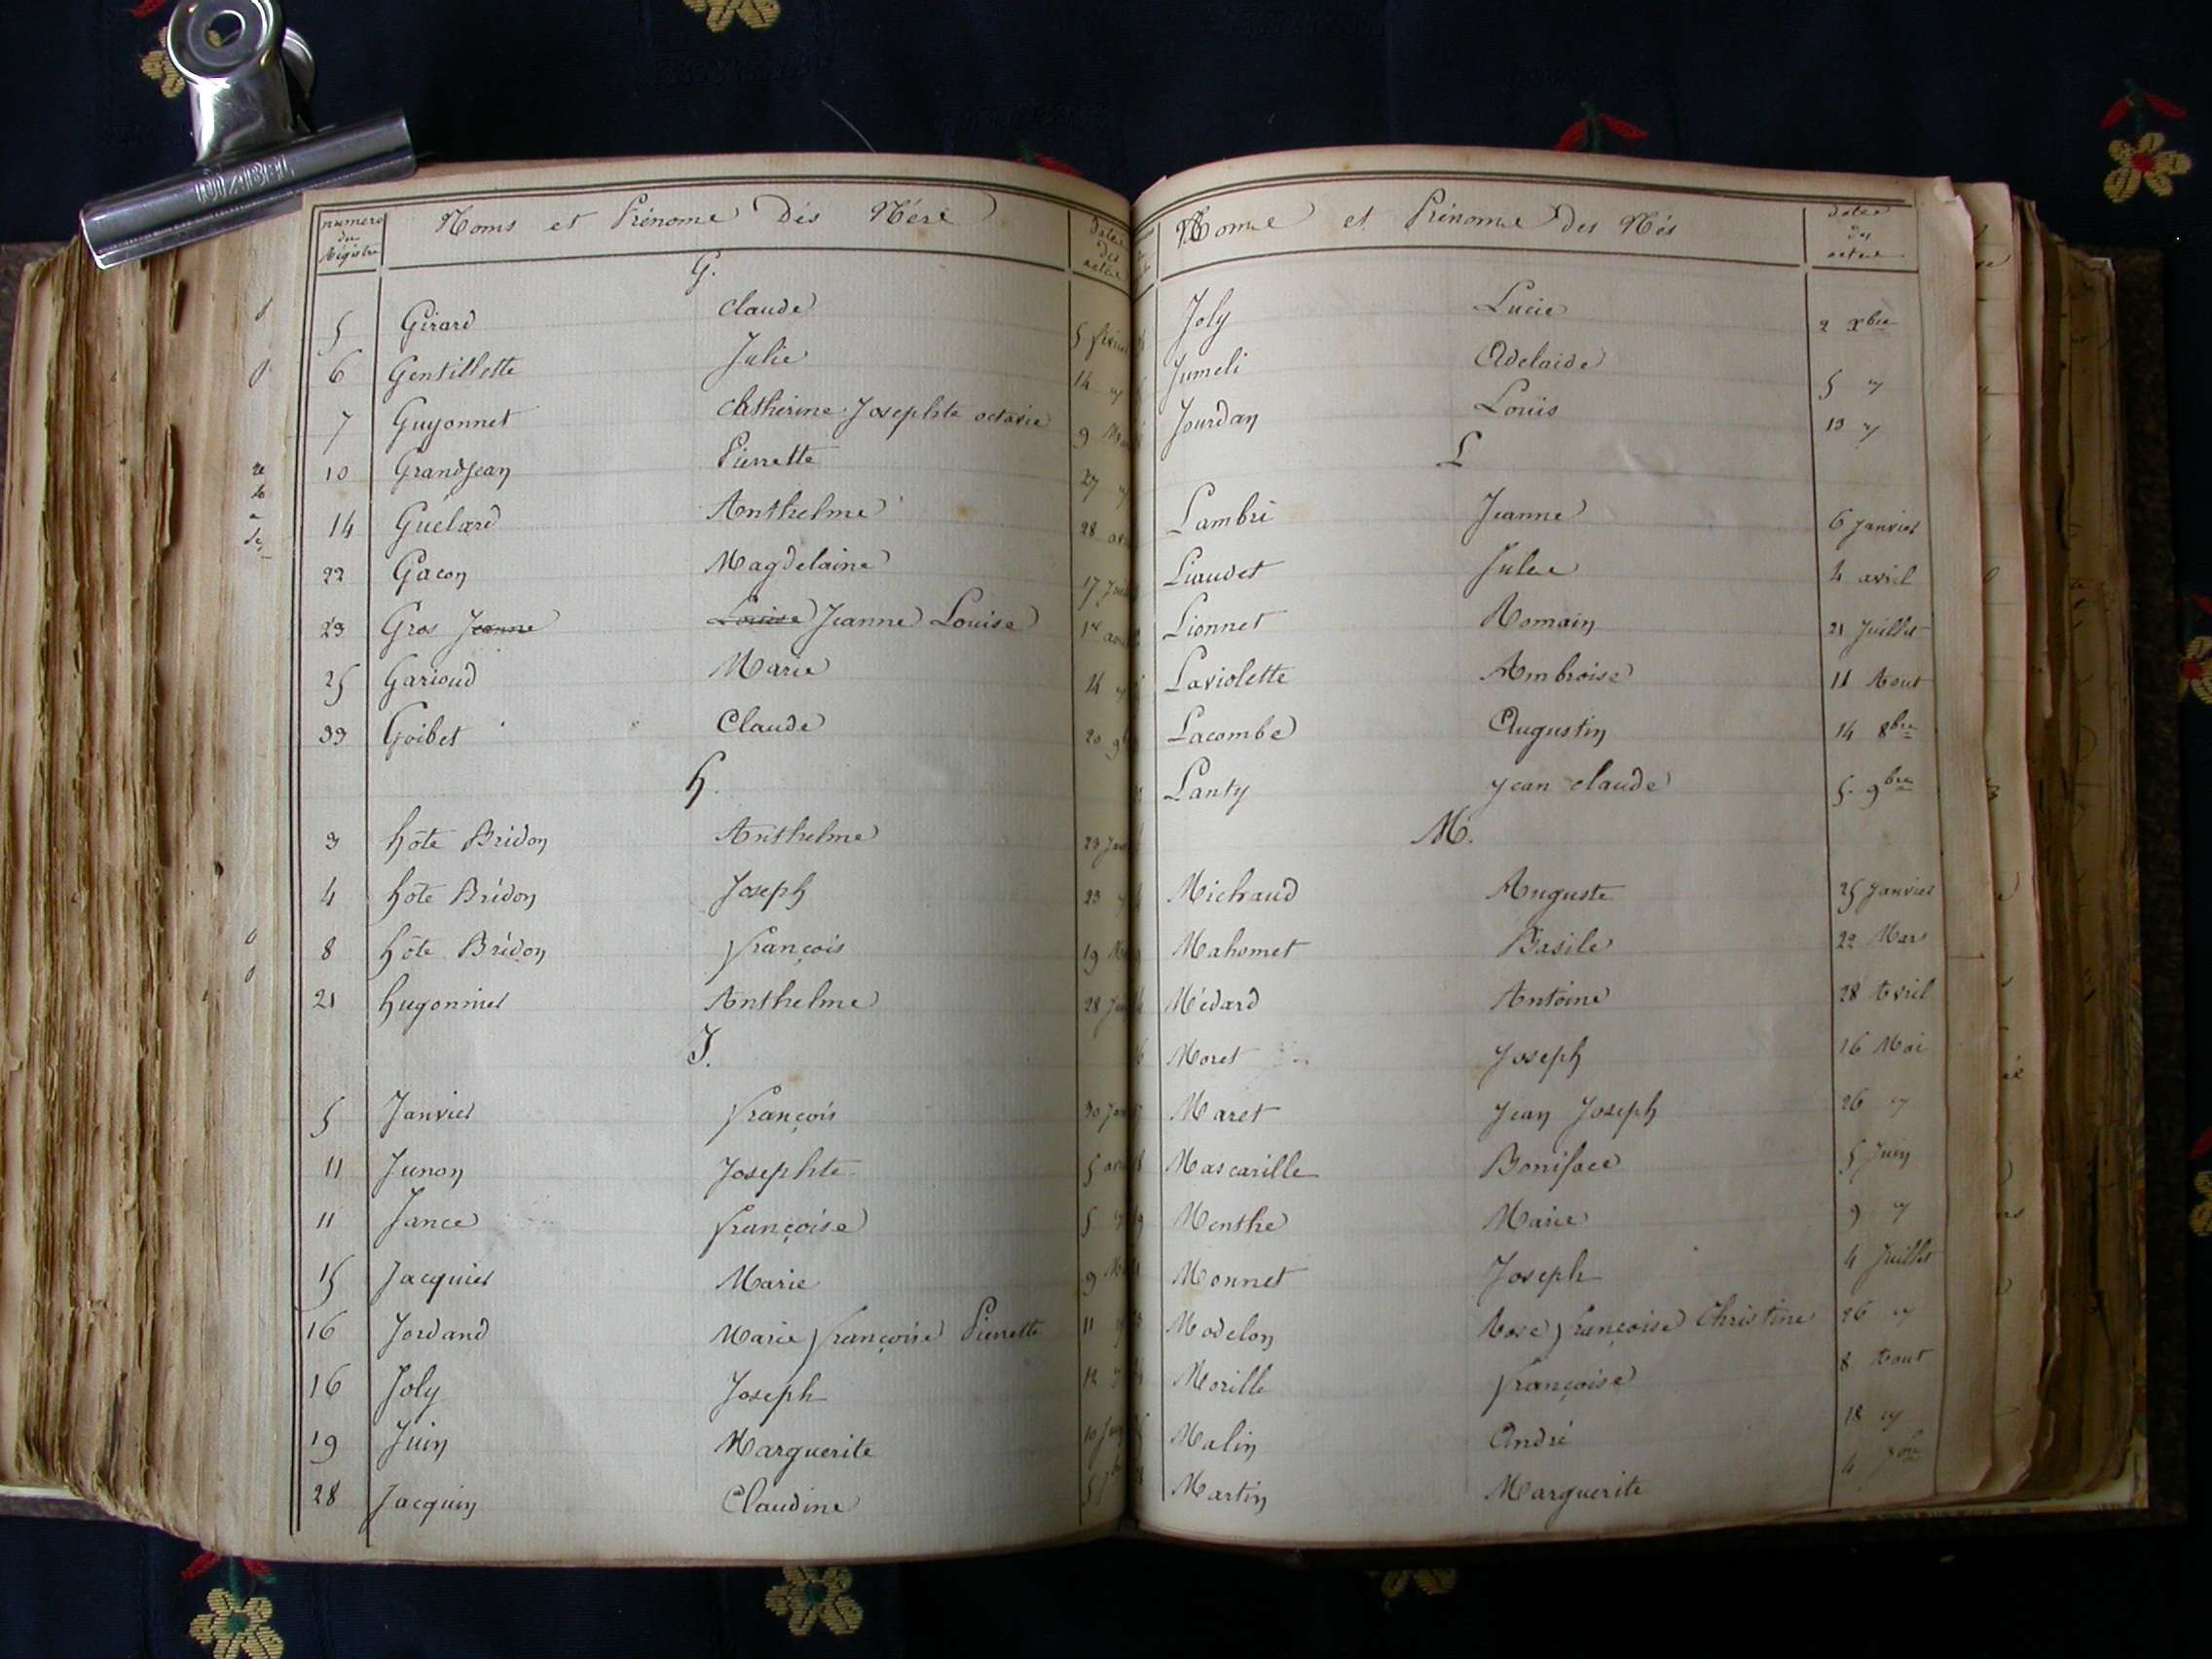 numero Noms et Prénoms Dés Néés dates
du des
Régistre actes
G.
5 Girard Claude 5
6 Gentillette Julie 14 "
7 Guyonnet Catherine Josephte octavie 9
10 Grandjean Pierrette 27 "
14 Guélard Anthelme 28
22 Gacon Magdelaine 17
23 Gros Jeanne Louise Jeanne Louise 1er
25 Garioud Marie 14
33 Goibet Claude 20
h.
3 hôte Bridon Anthelme 23
4 hôte Bridon Joseph 23
8 hôte Bridon françois 19
21 hugonnier Anthelme 28
J.
5 Janvier françois 30
11 Junon Josephte 5
11 Jance françoise 5
15 Jacquier Marie 9
16 Jordand Marie françoise Pierrette 11
16 Joly Joseph 12
19 Juin Marguerite 10
28 Jacquin Claudine
Noms et Prénoms Des Nés dates
des
actes
Joly Lucie 2 xbre
Jumeli Adelaide 5 "
Jourdan Louis 13 "
L
Lambri Jeanne 6 Janvier
Liaudet Julie 4 avril
Lionnet Romain 21 Juillet
Laviolette Ambroise 11 Aout
Lacombe Augustin 14 8bre
Lanty Jean Claude 5 9bre
M.
Michaud Auguste 25 Janvier
Mahomet Basile 22 Mars
Médard Antoine 28 Avril
Moret Joseph 16 Mai
Maret Jean Joseph 26 "
Mascarille Boniface 5 Juin
Menthe Marie 9 "
Monnet Joseph 4 Juillet
Modelon Rose françoise Christine 26 "
Morille françoise 8 Aout
Malin André 18 "
Martin Marguerite 4 7bre